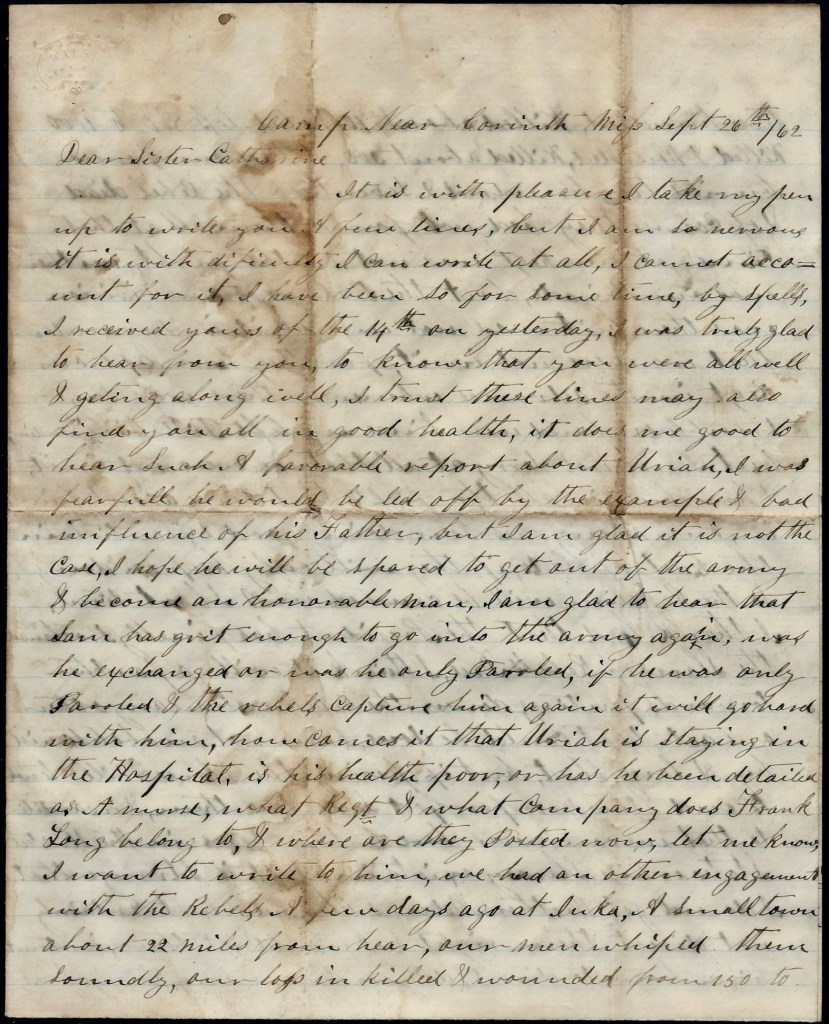 Camp Near Corinth Miss Sept 26th/62
Dear Sister Catharine
It is with pleasure I take my pen
up to write you A few lines, but I am so nervous
it is with dificulty I can write at all, I cannot acco=
unt for it, I have been so for some time, by spells,
I received yours of the 14th on yesterday, I was truly glad
to hear from you, to know that you were all well
& geting along well, I trust these lines may also
find you all in good health, it does me good to
hear Such A favorable report about Uriah, I was
fearfull he would be led off by the example & bad
influence of his Father, but I am glad it is not the
case, I hope he will be spared to get out of the army
& become an honorable man, I am glad to hear that
Sam has grit enough to go into the army again, was
he exchanged or was he only Paroled, if he was only
Paroled & the rebels capture him again it will go hard
with him, how comes it that Uriah is staying in
the Hospital, is his health poor, or has he been detailed
as A nurse, what Regt & what Company does Frank
Long belong to, & where are they Posted now, let me know,
I want to write to him, we had an other engagement
with the Rebels A few days ago at Iuka, A small town
about 22 miles from hear, our men whiped them
soundly, our loss in killed & wounded from 150 to